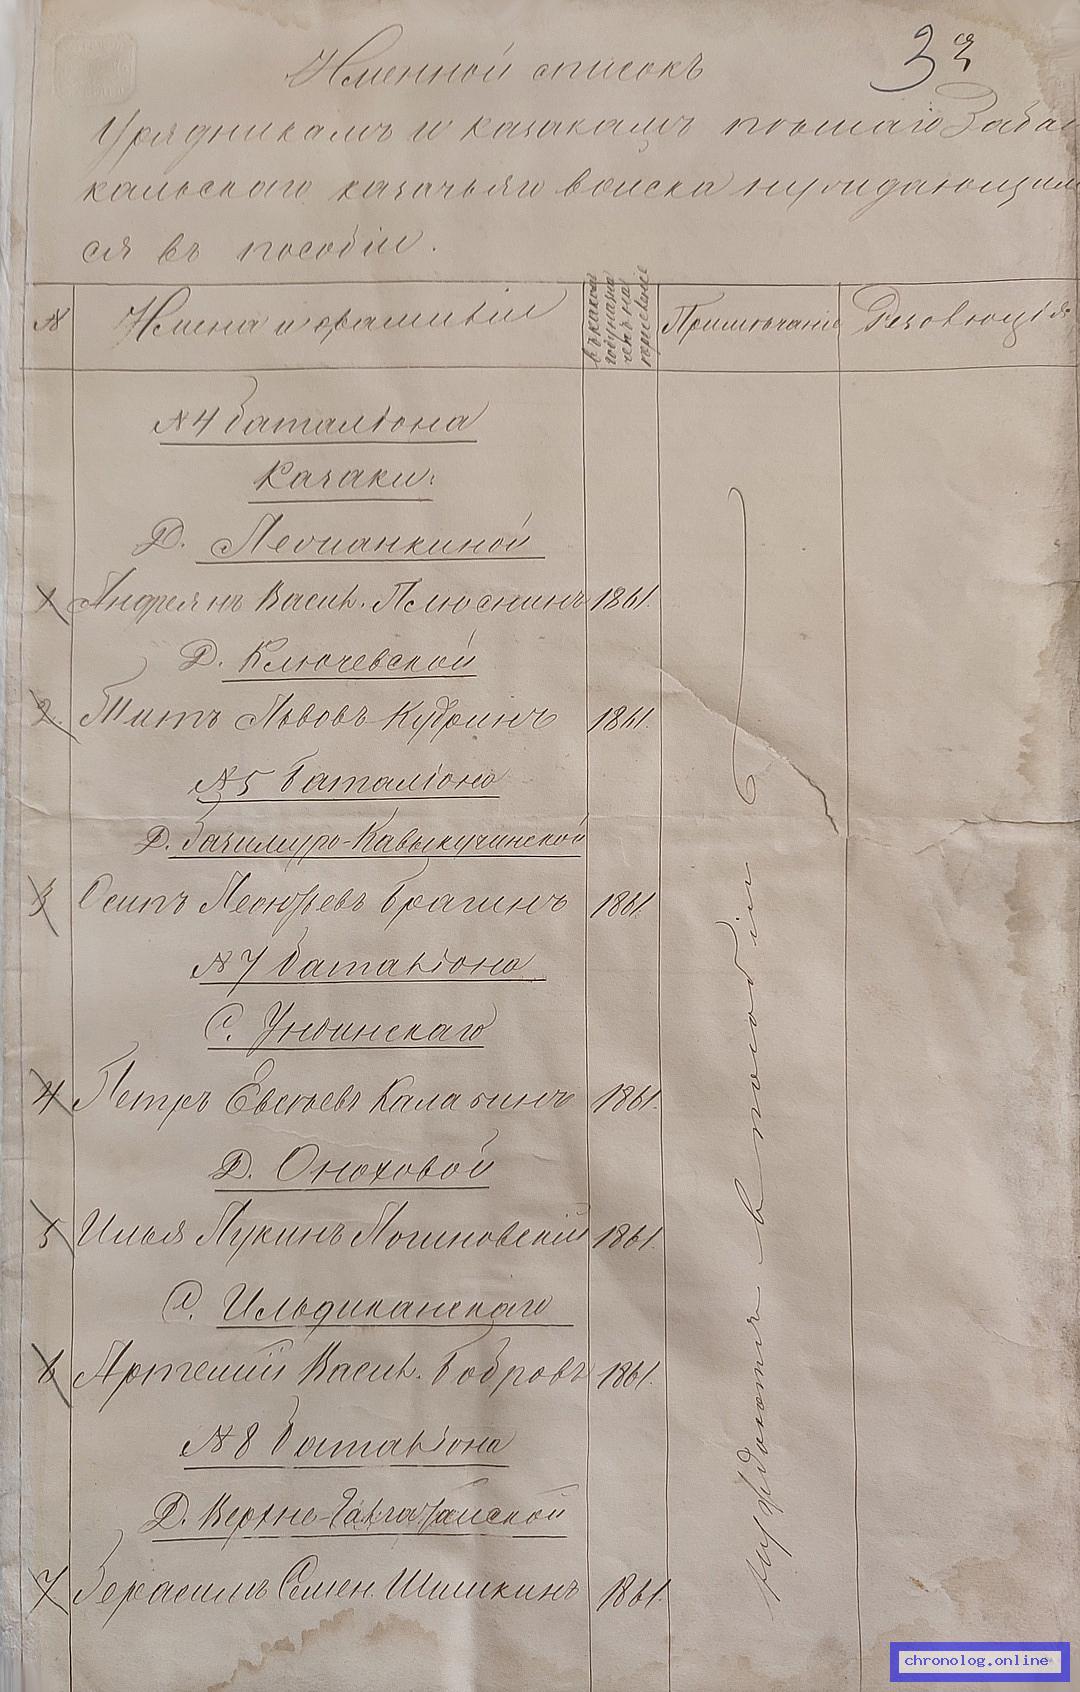 32
Именной списокъ
Урядникамъ и казакамъ пѣшаго Забай
кальскаго казачьяго войска нуждающим
ся въ пособіи.
№ Имена и фамиліи въ какой году назначенъ на Примѣчаніе Резолюція
№ 4 баталіона
Казаки:
Д.
1 Андреянъ Васил. Плюснинъ 1861.
Д. Ключевской
2. Титъ Львовъ Кудринъ 1861.
№ 5 баталіона
Д.
3 Осипъ Брагинъ 1861.
№ 7 баталіона
С. Ундинскаго
4 Петръ Евсѣевъ 1861.
Д. Оноховой
5 Илья Лукинъ Логиновскій 1861.
С. Ильдиканскаго
6 Артемій Васил. Бобровъ 1861.
№ 8 баталіона
Д. Верхне-
7 Герасимъ Семен. Шишкинъ 1861.
нуждаются в пособіи
chronolog.online